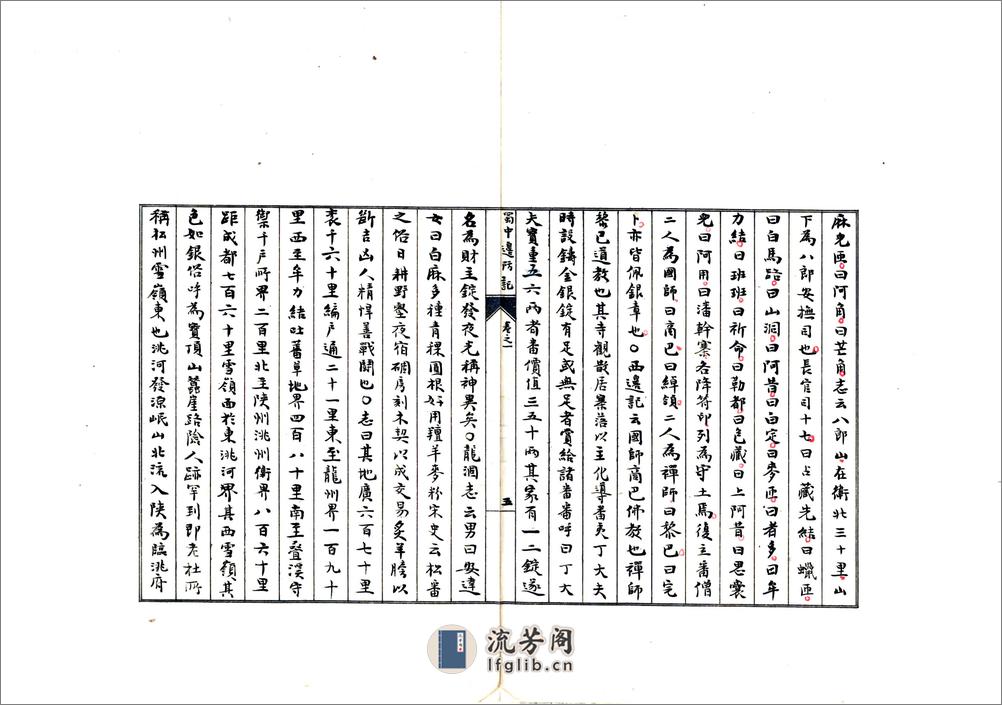 麻兒匝曰阿角曰芒角志云八郎山在衛北三十里山
下為八郎安撫司也長官司十七曰占藏先結曰蠟匝
曰白馬路曰山洞曰阿昔曰白定曰麥匝曰者多曰牟
力結曰班班曰祈命曰勒都曰包藏曰上阿昔曰思曩
兒曰阿用曰潘幹寨各降符印列為守土焉復立番僧
二人為國師曰商巴曰綽領二人為禪師曰黎巴曰完
卜亦皆佩銀章也〇西邊記云國師商巴佛教也禪師
黎巴道教也其寺觀散居寨落以主化導番夷丁大夫
時設鑄金銀錠有足或無足者賞給諸番番呼曰丁大
夫寶重五六兩者番價值三五十兩其家有一二錠遂
蜀中邊防記
卷之一
五
名為財主錠發夜光稱神異矣〇龍涸志云男曰安達
女曰白麻多種青稞圓根好用羶羊麥粉宋史云松番
之俗日耕野壑夜宿碉房刻木契以成交易炙羊膽以
斷吉凶人精悍善戰鬪也〇志曰其地廣六百七十里
袤千六十里編戶通二十一里東至龍州界一百九十
里西至牟力結吐蕃草地界四百八十里南至疊溪守
禦千戶所界二百里北至陝州洮州衛界八百六十里
距成都七百六十里雪嶺面於東洮河界其西雪嶺其
色如銀俗呼為寶頂山蠶崖路險人跡罕到即老杜所
稱松州雪嶺東也洮河發源岷山北流入陝為臨洮府
流芳阁
lfglib.cn